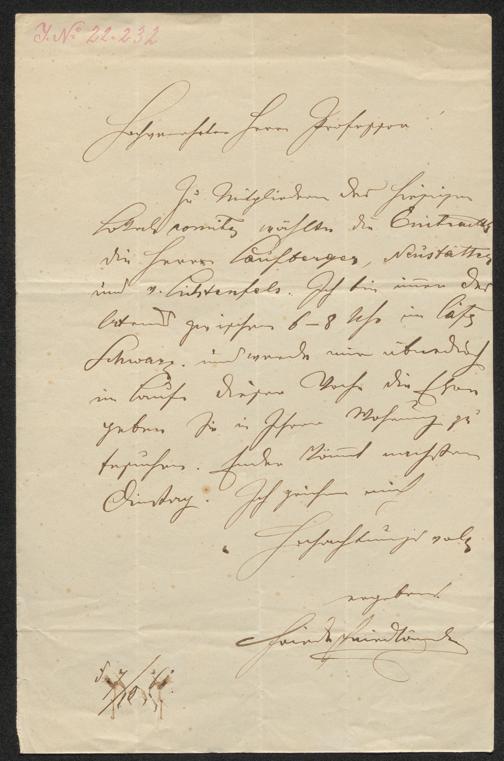 J. No 22.232
Hochverehrter Herr Professor!
Zu Mitgliedern des hiesigen
Lokalcomités wählte die Eintracht
die Herren Laufberger, Neustätter
und v. Lichtenfels. Ich bin immer des
Abends zwischen 6–8 Uhr im Café
Schwarz und werde mir überdieß
im Laufe dieser Woche die Ehre
geben Sie in Ihrer Wohnung zu
besuchen. Ender kömmt nächsten
Dinstag. Ich zeichne mich
Hochachtungsvoll
ergebenst
Friedländer